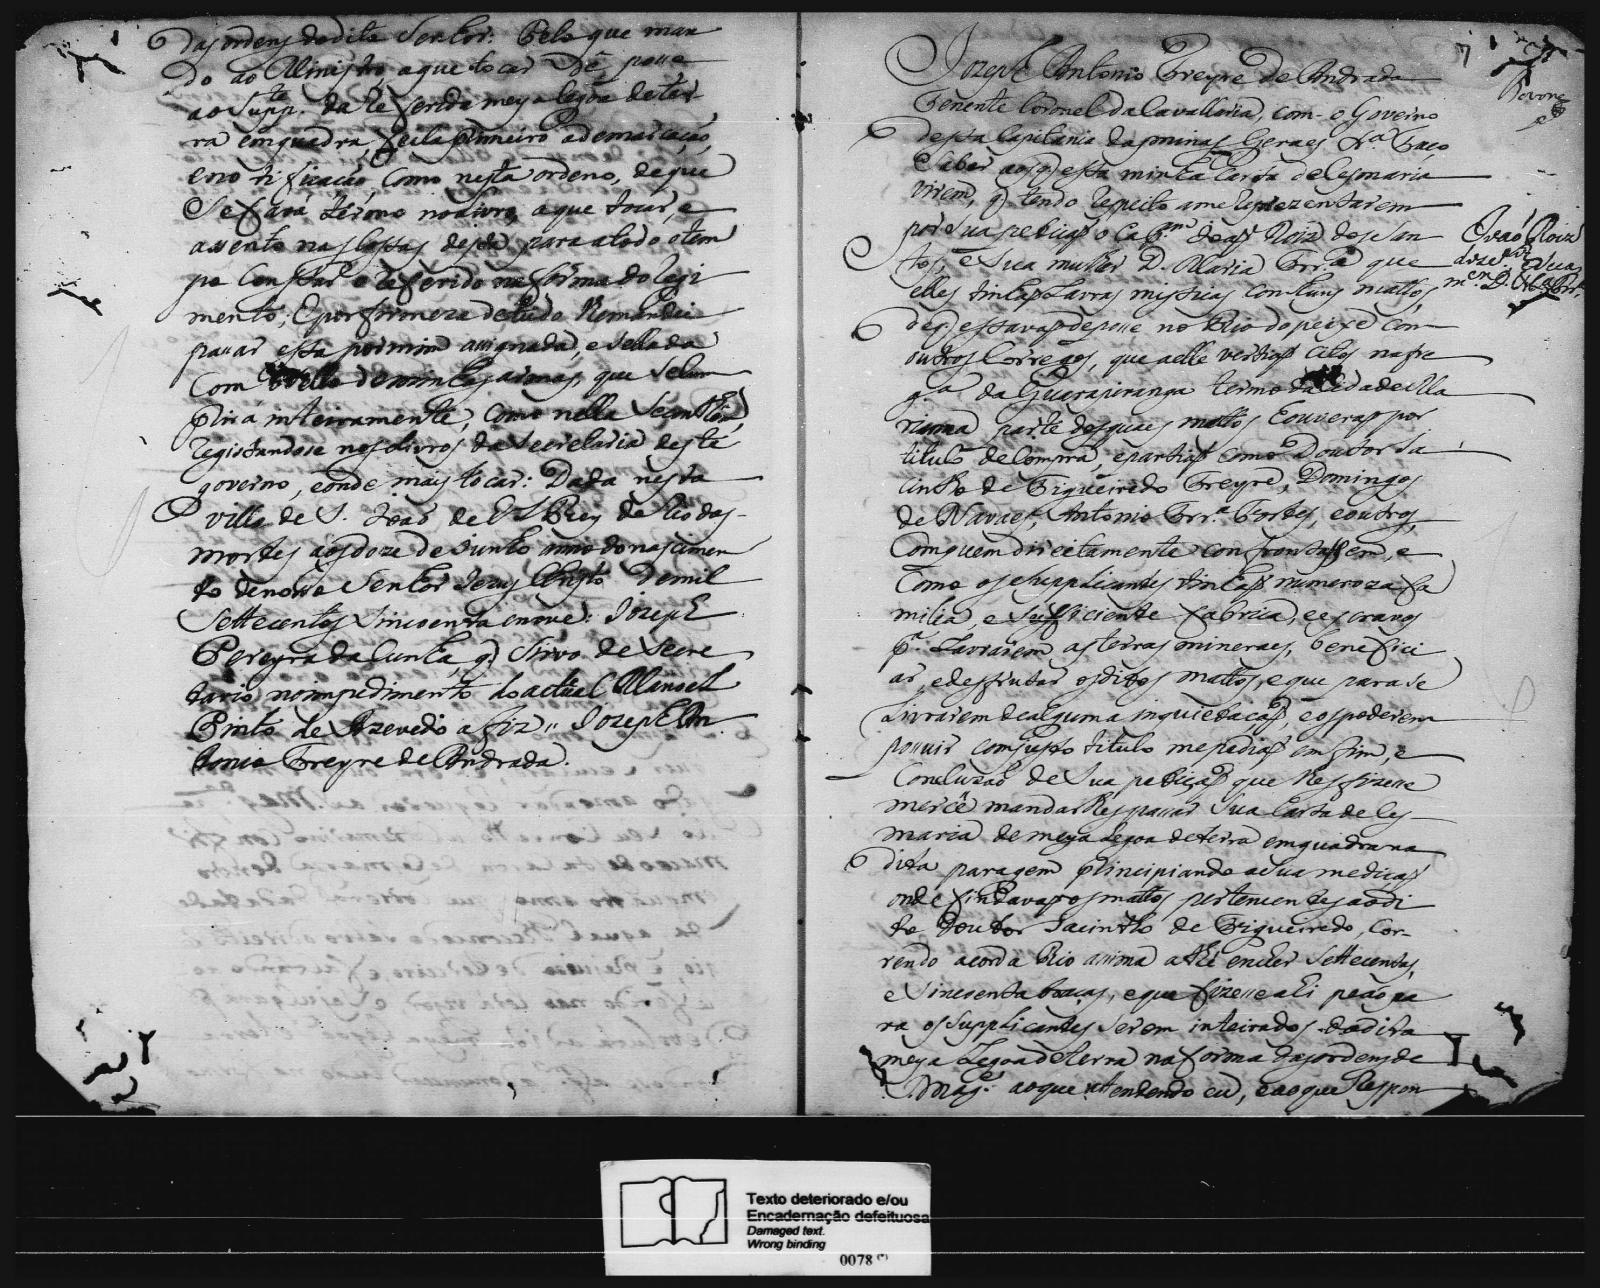 das ordens do dito Senhor: Pelo que man
do ao Ministro, a que tocar dê posse
ao Supp.te da referida meya legoa de ter
ra em quadra, feita primeiro a demarcação,
e no tificação, como nesta ordeno, de que
se fará termo no livro, a que tocar, e
assento nas costas desta para a todo o tem
po constar o referido na forma do Regi
mento; E por firmeza de tudo lhe mandei
passar esta por mim assignada, e sellada
com o sello de minhas armas, que se cum
prirá inteiramente, como nella se contem,
registandose nos livros da Secretaria deste
governo, e onde mais tocar: Dada nesta
villa de S. João de El Rey do Rio das
mortes aos doze de Junho anno do nascimen
to de nosso Senhor Jezus Christo de mil
settecentos sincoenta e nove: Jozeph
Pereyra da Cunha, q' sirvo de Secre
tario no impedimento do actual Manoel
Pinto de Azevedo a fiz,, Jozeph An
tonio Freyre de Andrada.
7
Jozeph Antonio Freyre de Andrada
Tenente Coronel da Cavallaria, com o Governo
desta Capitania das minas Geraes &.a Faço
saber aos q' esta minha Carta de Cesmaria
virem, q' tendo respeito a me reprezentarem
por sua petição o Cap.m João Roiz dos San
tos, e sua mulher D. Maria Frr.a que
elles tinhão Lavras misticas com huns mattos,
de q' estavão de posse no Rio do peixe com
outros Corregos, que a elle vertião citos na fre
g.a da Guarapiranga termo da Cidade Ma
rianna parte dos quaes mattos houverão por
titulo de Compra, e partião com o Doutor Ja
cintho de Figueiredo Freyre, Domingos
de Navaes, Antonio Frr.a Fortes, e outros,
com quem direitamente confrontassem, e
como os Supplicantes tinhão numeroza fa
milia, e sufficiente fabrica, e escravos
p.a Lavrarem as terras mineraes, benefici
ar, e desfrutar os ditos mattos, e que para se
Livrarem de alguma inquietação, e os poderem
possuir com justo titulo me pedião em fim, e
Concluzão de sua petição que lhes fizesse
mercê mandar lhes passar sua Carta de Ces
maria de meya Legoa de terra em quadra na
dita paragem principiando a sua medição
onde findavão os mattos pertencentes ao di
to Doutor Jacintho de Figueiredo, cor
rendo a corda Rio assima athé encher settecentas,
e sincoenta braças, e que fizesse ahi peão pa
ra os Supplicantes serem inteirados da dita
meya Legoa de terra na forma das ordens de
S. Mag.e ao que attendendo eu, e ao que respon
João Roiz
dos S.tos e sua
m.er D. M.a Frr.a
Texto deteriorado e/ou
Encadernação defeituosa
Damaged text.
Wrong binding
0078